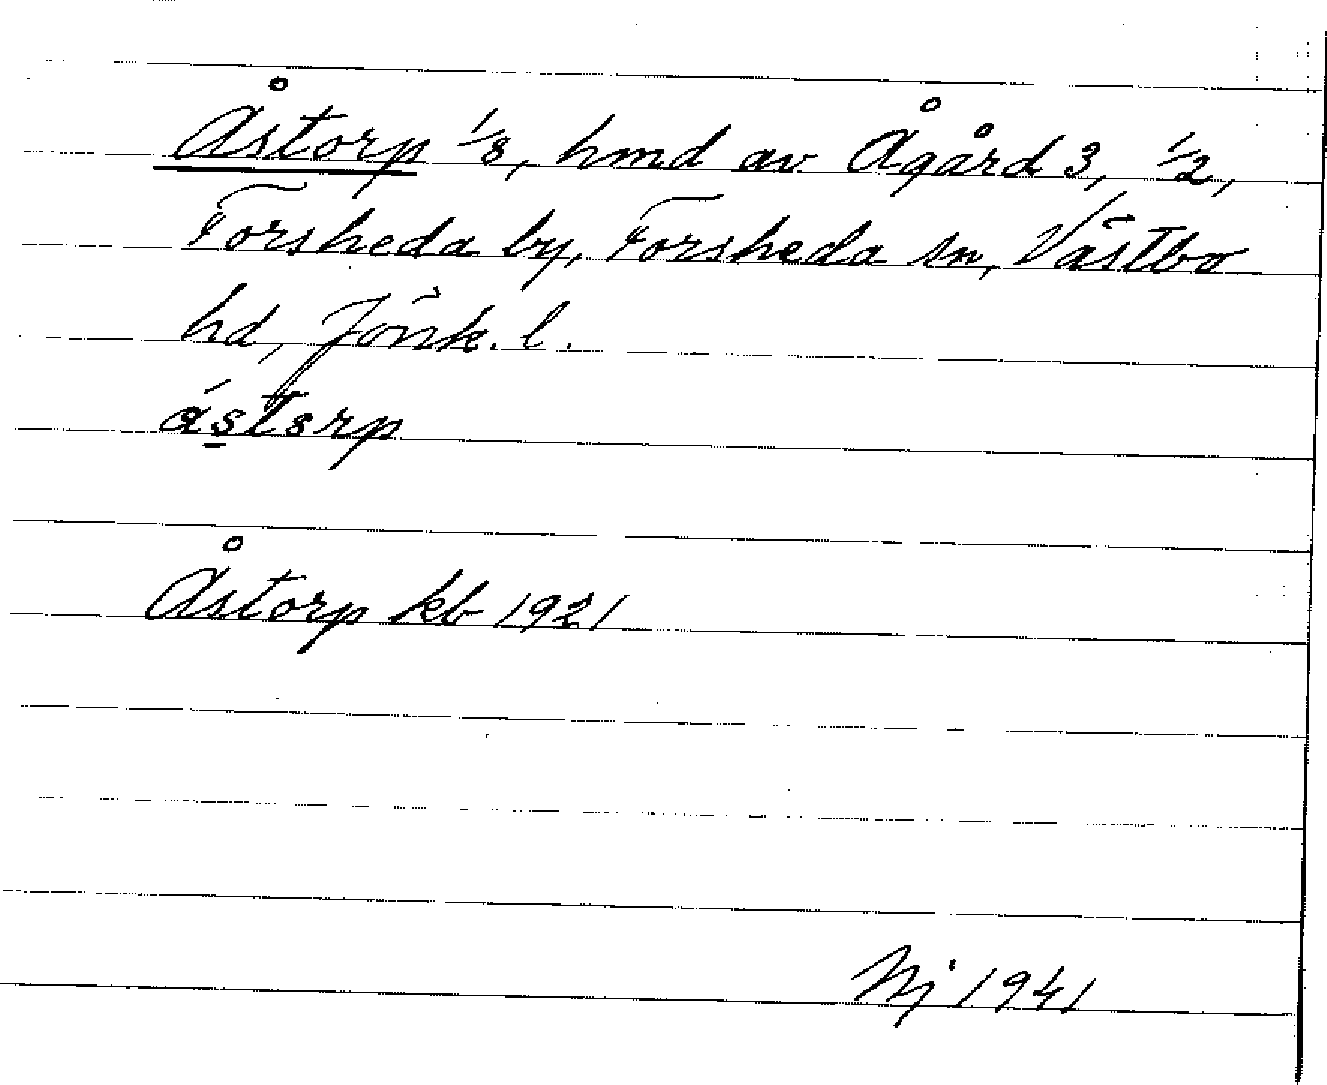 Åstorp 1/8, hmd av Ågård 3, 1/2,
Forsheda by, Forsheda sn, Västbo
hd, Jönk. l.
Åstorp kb 1921
Nj 1941